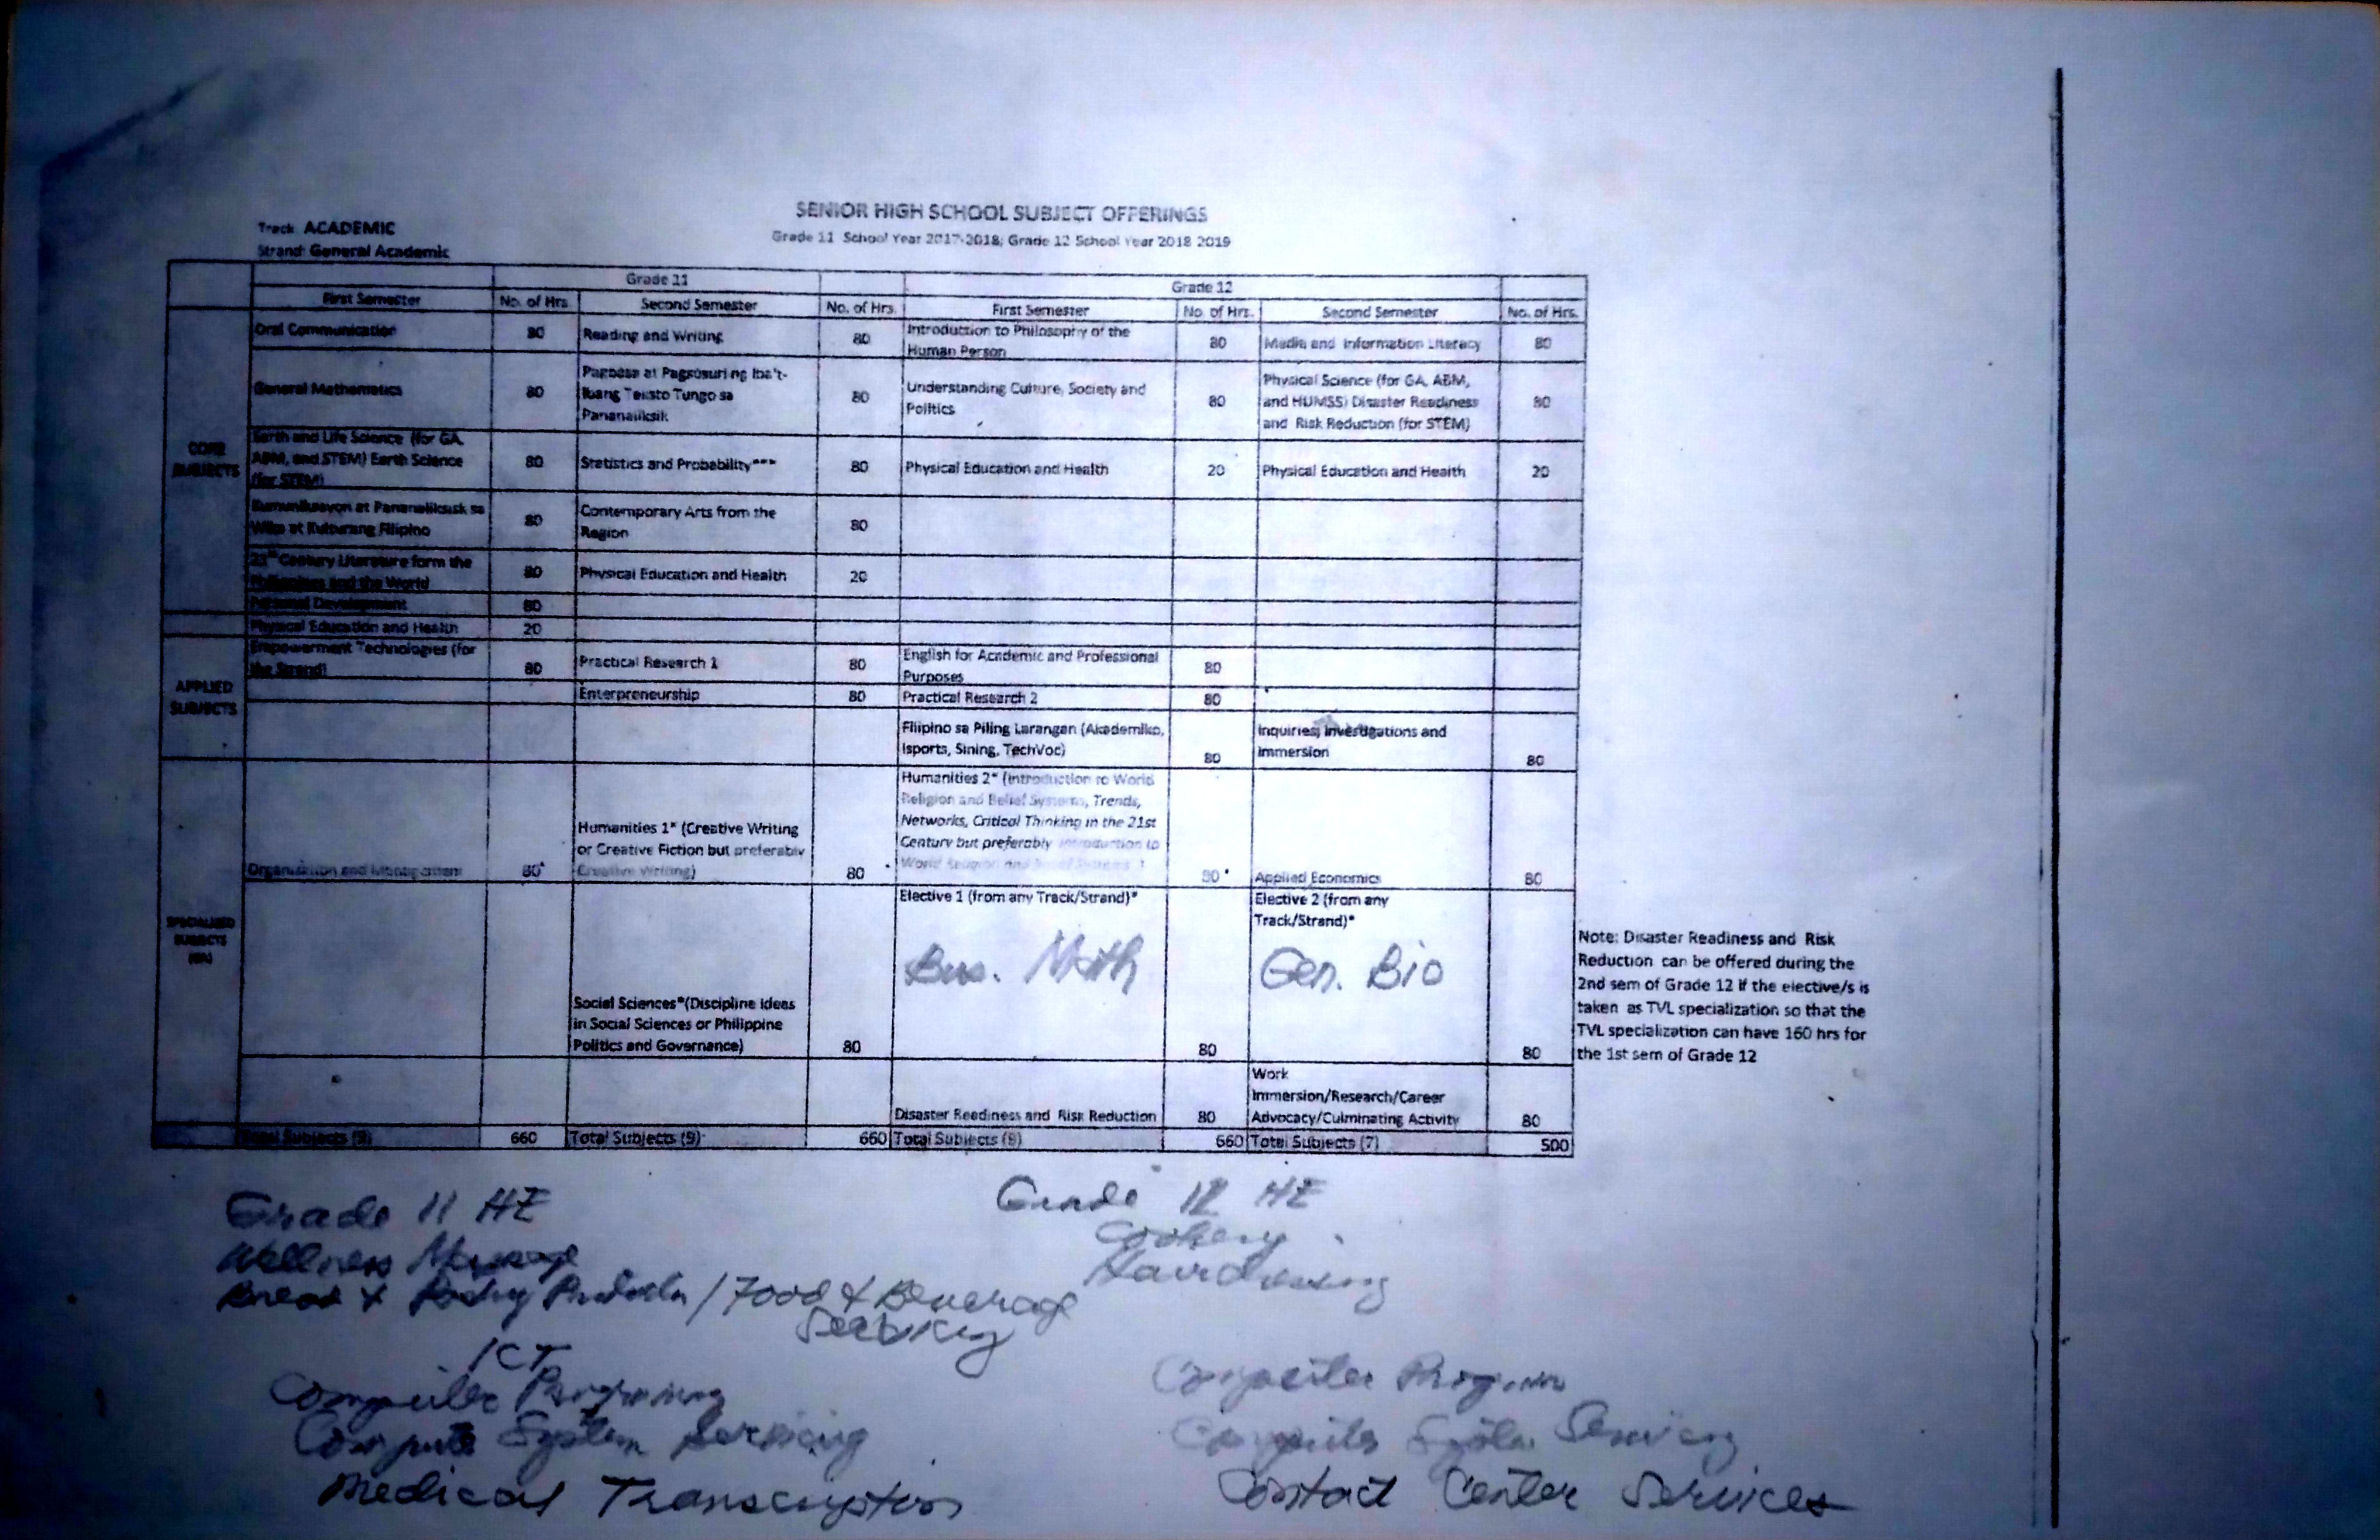 SENIOR HIGH SCHOOL SUBJECT OFFERINGS
Track: ACADEMIC
Grade 11 School Year 2017-2018; Grade 12 School Year 2018 2019
Strand: General Academic
Grade 11
Grade 12
First Semester
No. of Hrs.
Second Semester
No. of Hrs.
First Semester
No. of Hrs.
Second Semester
No. of Hrs.
CORE
SUBJECTS
Oral Communication
80
Reading and Writing
80
Introduction to Philosophy of the
Human Person
80
Media and Information Literacy
80
General Mathematics
80
Pagbasa at Pagsusuri ng Iba't-
Ibang Teksto Tungo sa
Pananaliksik
80
Understanding Culture, Society and
Politics
80
Physical Science (for GA, ABM,
and HUMSS) Disaster Readiness
and Risk Reduction (for STEM)
80
Earth and Life Science (for GA,
ABM, and STEM) Earth Science
(for STEM)
80
Statistics and Probability***
80
Physical Education and Health
20
Physical Education and Health
20
Komunikasyon at Pananaliksik sa
Wika at Kulturang Filipino
80
Contemporary Arts from the
Region
80
21st Century Literature form the
Philippines and the World
80
Physical Education and Health
20
Personal Development
80
Physical Education and Health
20
APPLIED
SUBJECTS
Empowerment Technologies (for
the Strand)
80
Practical Research 1
80
English for Academic and Professional
Purposes
80
Enterpreneurship
80
Practical Research 2
80
Filipino sa Piling Larangan (Akademiko,
Isports, Sining, TechVoc)
80
Inquiries, Investigations and
Immersion
80
SPECIALIZED
SUBJECTS
(GA)
Organization and Management
80
Humanities 1* (Creative Writing
or Creative Fiction but preferably
Creative Writing)
80
Humanities 2* (Introduction to World
Religion and Belief Systems, Trends,
Networks, Critical Thinking in the 21st
Century but preferably Introduction to
World Religion and Belief Systems )
80
Applied Economics
80
Social Sciences*(Discipline Ideas
in Social Sciences or Philippine
Politics and Governance)
80
Elective 1 (from any Track/Strand)*
Bus. Math
80
Elective 2 (from any
Track/Strand)*
Gen. Bio
80
Note: Disaster Readiness and Risk
Reduction can be offered during the
2nd sem of Grade 12 if the elective/s is
taken as TVL specialization so that the
TVL specialization can have 160 hrs for
the 1st sem of Grade 12
Disaster Readiness and Risk Reduction
80
Work
Immersion/Research/Career
Advocacy/Culminating Activity
80
Total Subjects (9)
660
Total Subjects (9)
660
Total Subjects (8)
660
Total Subjects (7)
500
Grade 11 HE
Wellness Massage
Bread & Pastry / Food & Beverage
Servicing
Grade 12 HE
Cookery
Hairdressing
ICT
Computer Programing
Computer System Servicing
Medical Transcription
Computer Program
Computer System Servicing
Contact Center Services